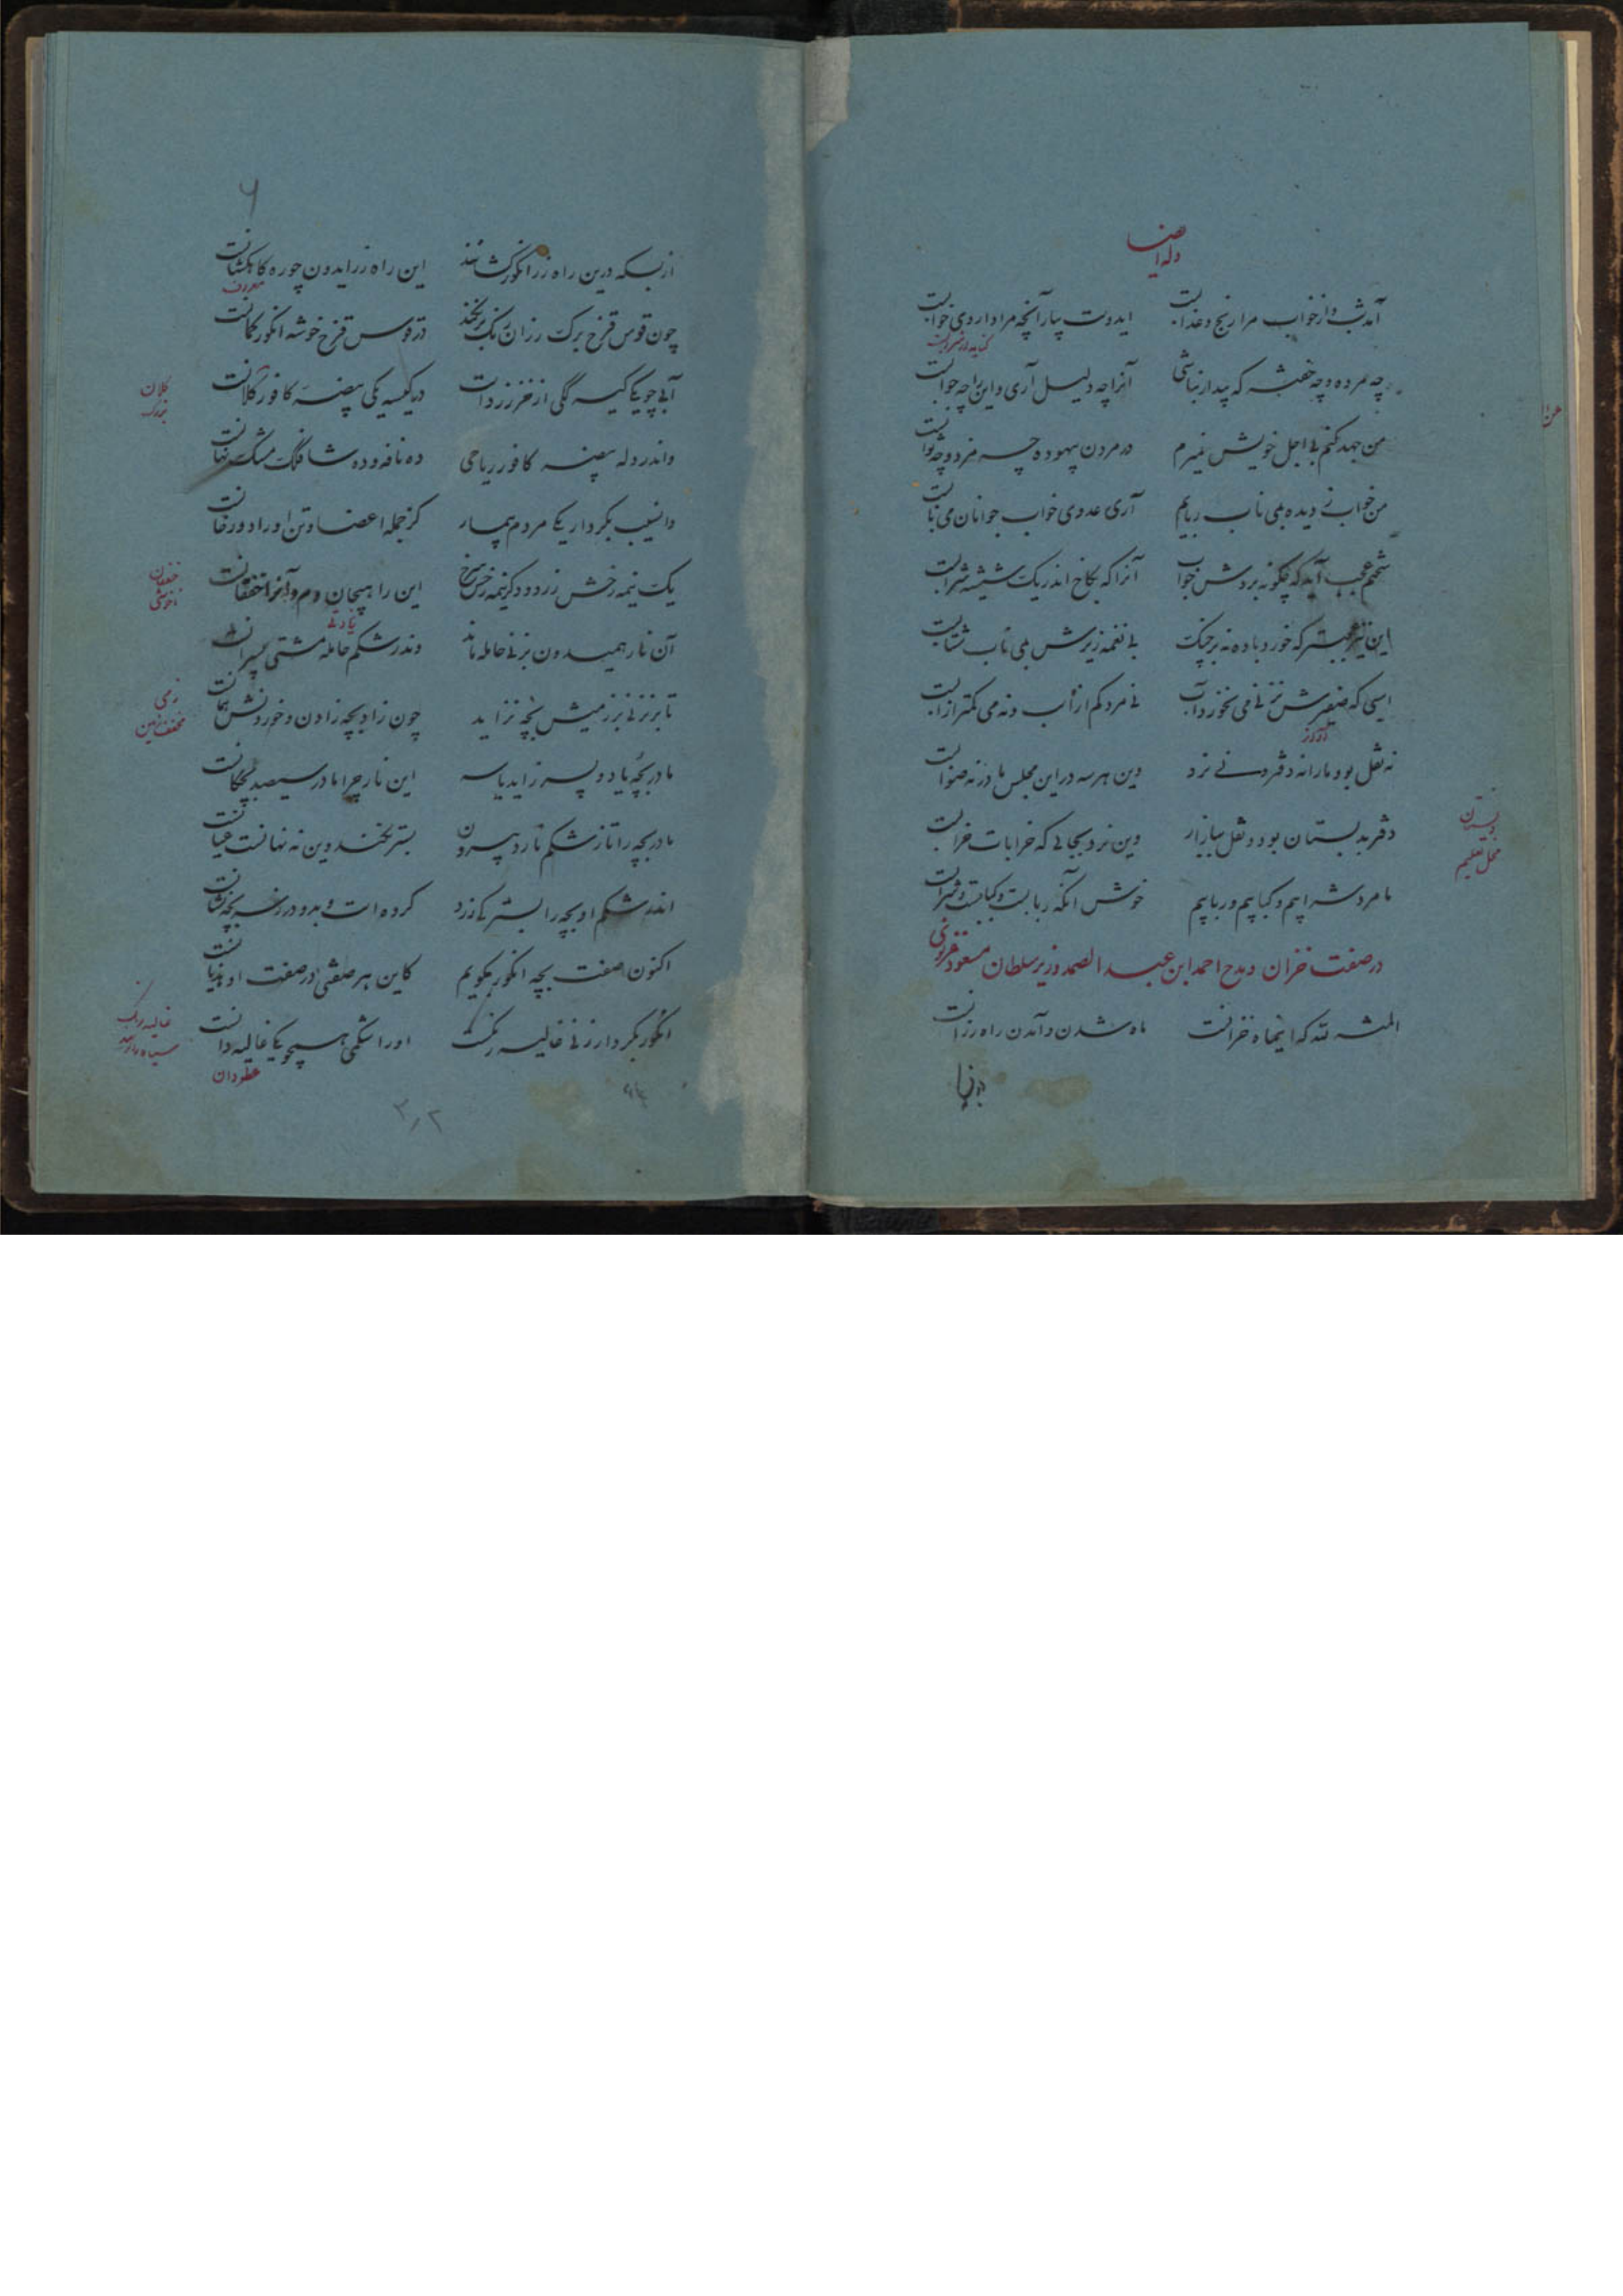 وله ایضا
آمد شب و از خواب مرا رنج و عذابست ایدوست بیار آنچه مرا داروی خوابست
چه مرده و چه خفته که بیدار نباشی آنرا چه دلیل آری و این را چه جوابست
من جهد کنم بی اجل خویش نمیرم در مردن بیهوده چه مزد و چه ثوابست
من خواب ز دیده بمی ناب ربایم آری عدوی خواب جوانان می نابست
سختم عجب آید که چگونه بردش خواب آنرا که بکاخ اندر یک شیشه شرابست
این نیز عجبتر که خورد باده نه بر چنگ بی نغمه زیرش بمی ناب شتابست
اسبی که صفیرش نزنی می نخورد آب نی مرد کم از اسب و نه می کمتر از آبست
آواز
نه نقل بود ما را نه دفتر و نی نرد وین هر سه در این مجلس ما در نه صوابست
دفتر بدبستان بود و نقل ببازار وین نرد بجائی که خرابات خرابست
دبستان
محل تعلیم
ما مرد شرابیم و کبابیم و ربابیم خوش آنکه ربابست و کبابست و شرابست
در صفت خزان و مدح احمد ابن عبد الصمد وزیر سلطان مسعود غزنوی
المنة لله که اینماه خزانست ماه شدن و آمدن راه رزانست
از بسکه درین راه رز انگور کشانند این راه رز ایدون چو ره کاهکشانست
معروف
چون قوس قزح برگ رزان رنگ برنگند در قوس قزح خوشه انگور گمانست
آبی چو یکی کیسگکی از خز زرد است در کیسه یکی بیضه کافور کلانست
کلان
بزرگ
واندر دل بیضه کافور ریاحی ده نافه و ده شاخگک مشک نهانست
وان سیب بکردار یکی مردم بیمار کز جمله اعضا و تن او را دو رخانست
یک نیمه رخش زرد و دگر نیمه رخش سرخ این را هیجان دم و آنرا خفقانست
خفقان
ناخوشی
آن نار همیدون بزنی حامله ماند وندر شکم حامله مشتی پسرانست
تا بر نزنی بر زمیش بچه نزاید چون زاد بچه زادن و خوردنش همانست
زمی
مخفف زمین
مادر بچه یا دو پسر زاید یا سه این نار چرا مادر سیصد بچگانست
مادر بچه را تا ز شکم نارد بیرون بستر نکند وین نه نهانست عیانست
اندر شکم او بچه را بسترکی زرد کرده است و بدو در ز سر بچه نشانست
اکنون صفت بچه انگور بگویم کاین هر صفتی در صفت او هذیانست
انگور بکردار زنی غالیه رنگست او را شکمی همچو یکی غالیه دانست
غالیه رنگ
عطردان